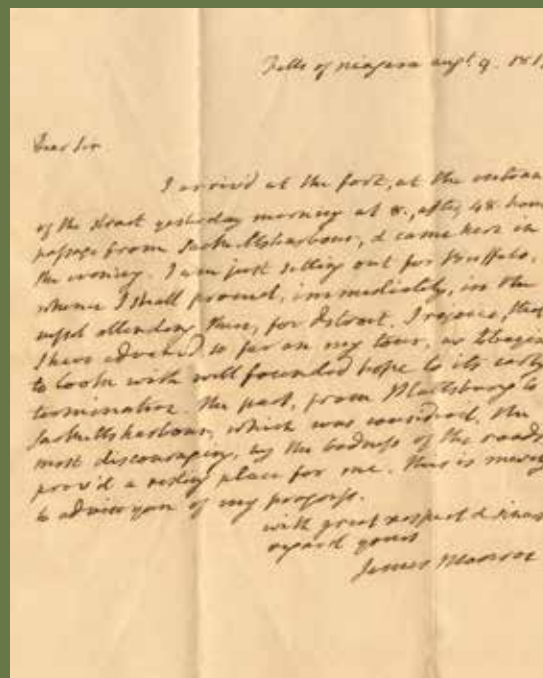 Falls of Niagara augt 9. 181
Dear Sir
I arriv'd at the fort, at the entran
of the strait yesterday morning at 8., after 48. hours
passage from Sacketts harbour, & came here in
the evening. I am just setting out for Buffalo,
whence I shall proceed, immediately, in the
vessel attending there, for detroit. I rejoice, that
I have advanc'd so far on my tour, as to begin
to look with well founded hope to its early
termination. The part, from Plattsburg to
Sacketts harbour, which was considered, the
most discouraging, by the badness of the roads
prov'd a resting place for me. This is merely
to advise you of my progress.
with great respect & sincere
regard yours
James Monroe